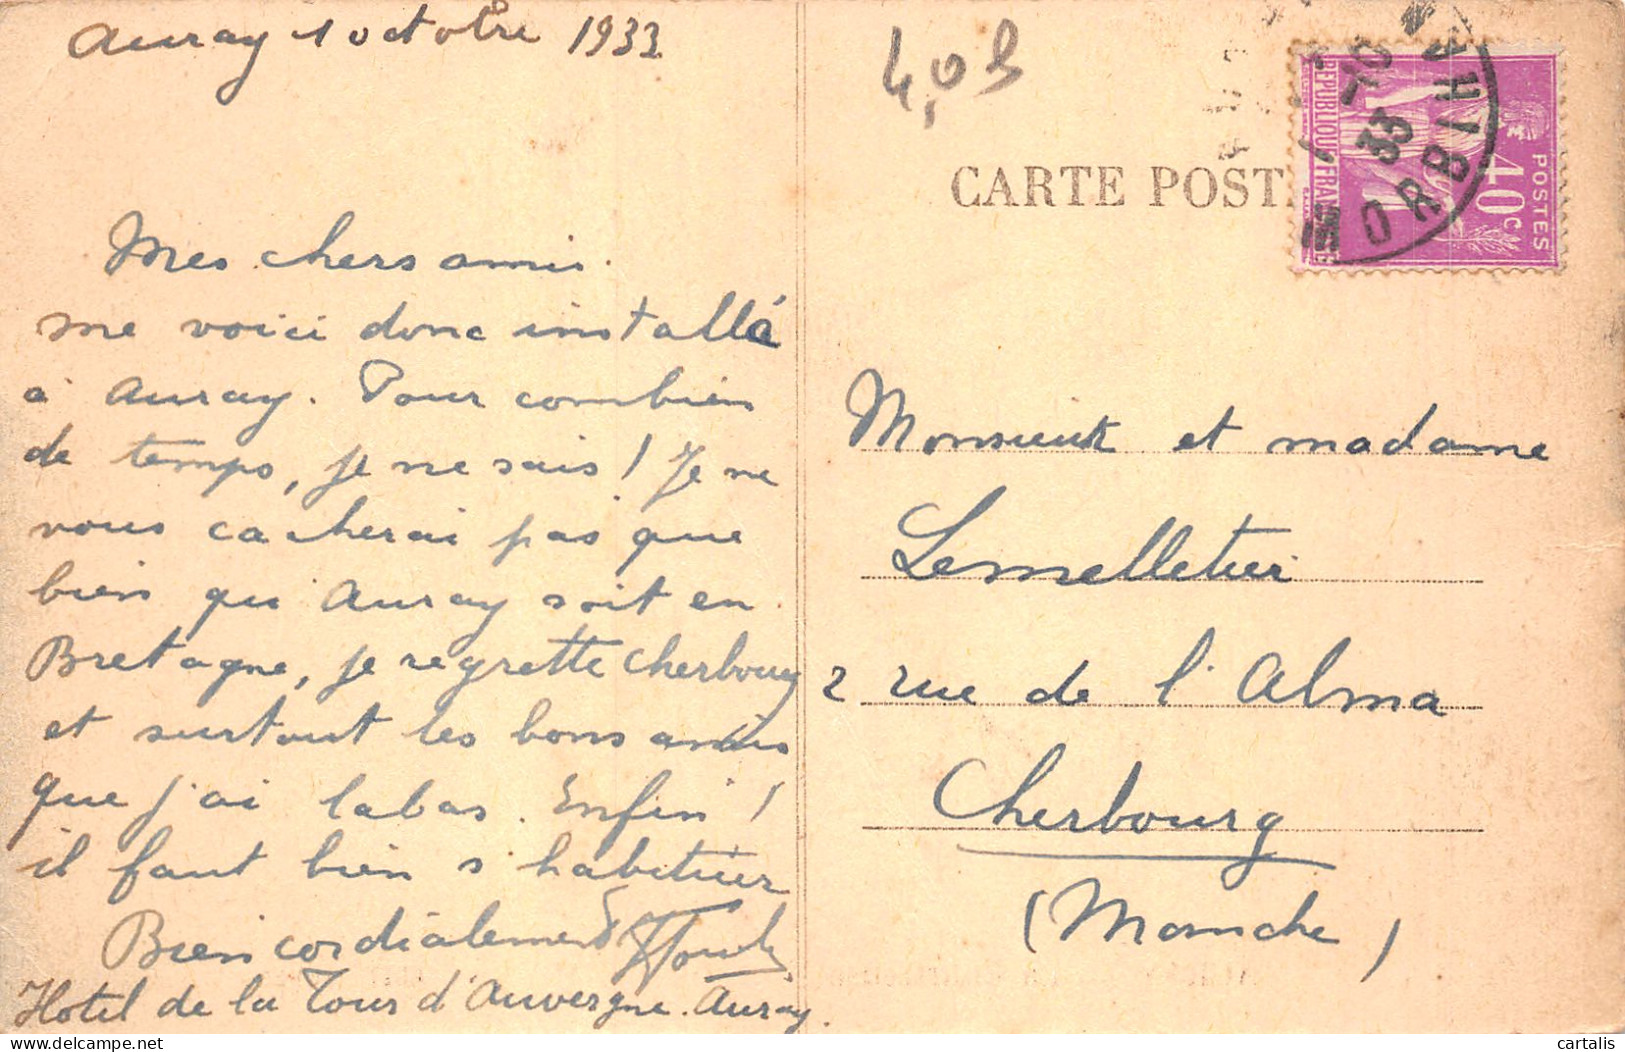 Auray 1 octobre 1933
Mes chers amis.
me voici donc installé
à Auray. Pour combien
de temps, je ne sais ! Je ne
vous cacherai pas que
bien qu'Auray soit en
Bretagne, je regrette Cherbourg
et surtout les bons amis
que j'ai labas. Enfin !
il faut bien s'habituer
Bien cordialement
Hotel de la Tour d'Auvergne. Auray.
4,03
CARTE POST
REPUBLIQUE FRAN
POSTES
40c
10
33
MORBIHAN
Monsieur et madame
Lemelletier
2 rue de l'Alma
Cherbourg
(Manche)
cartalis